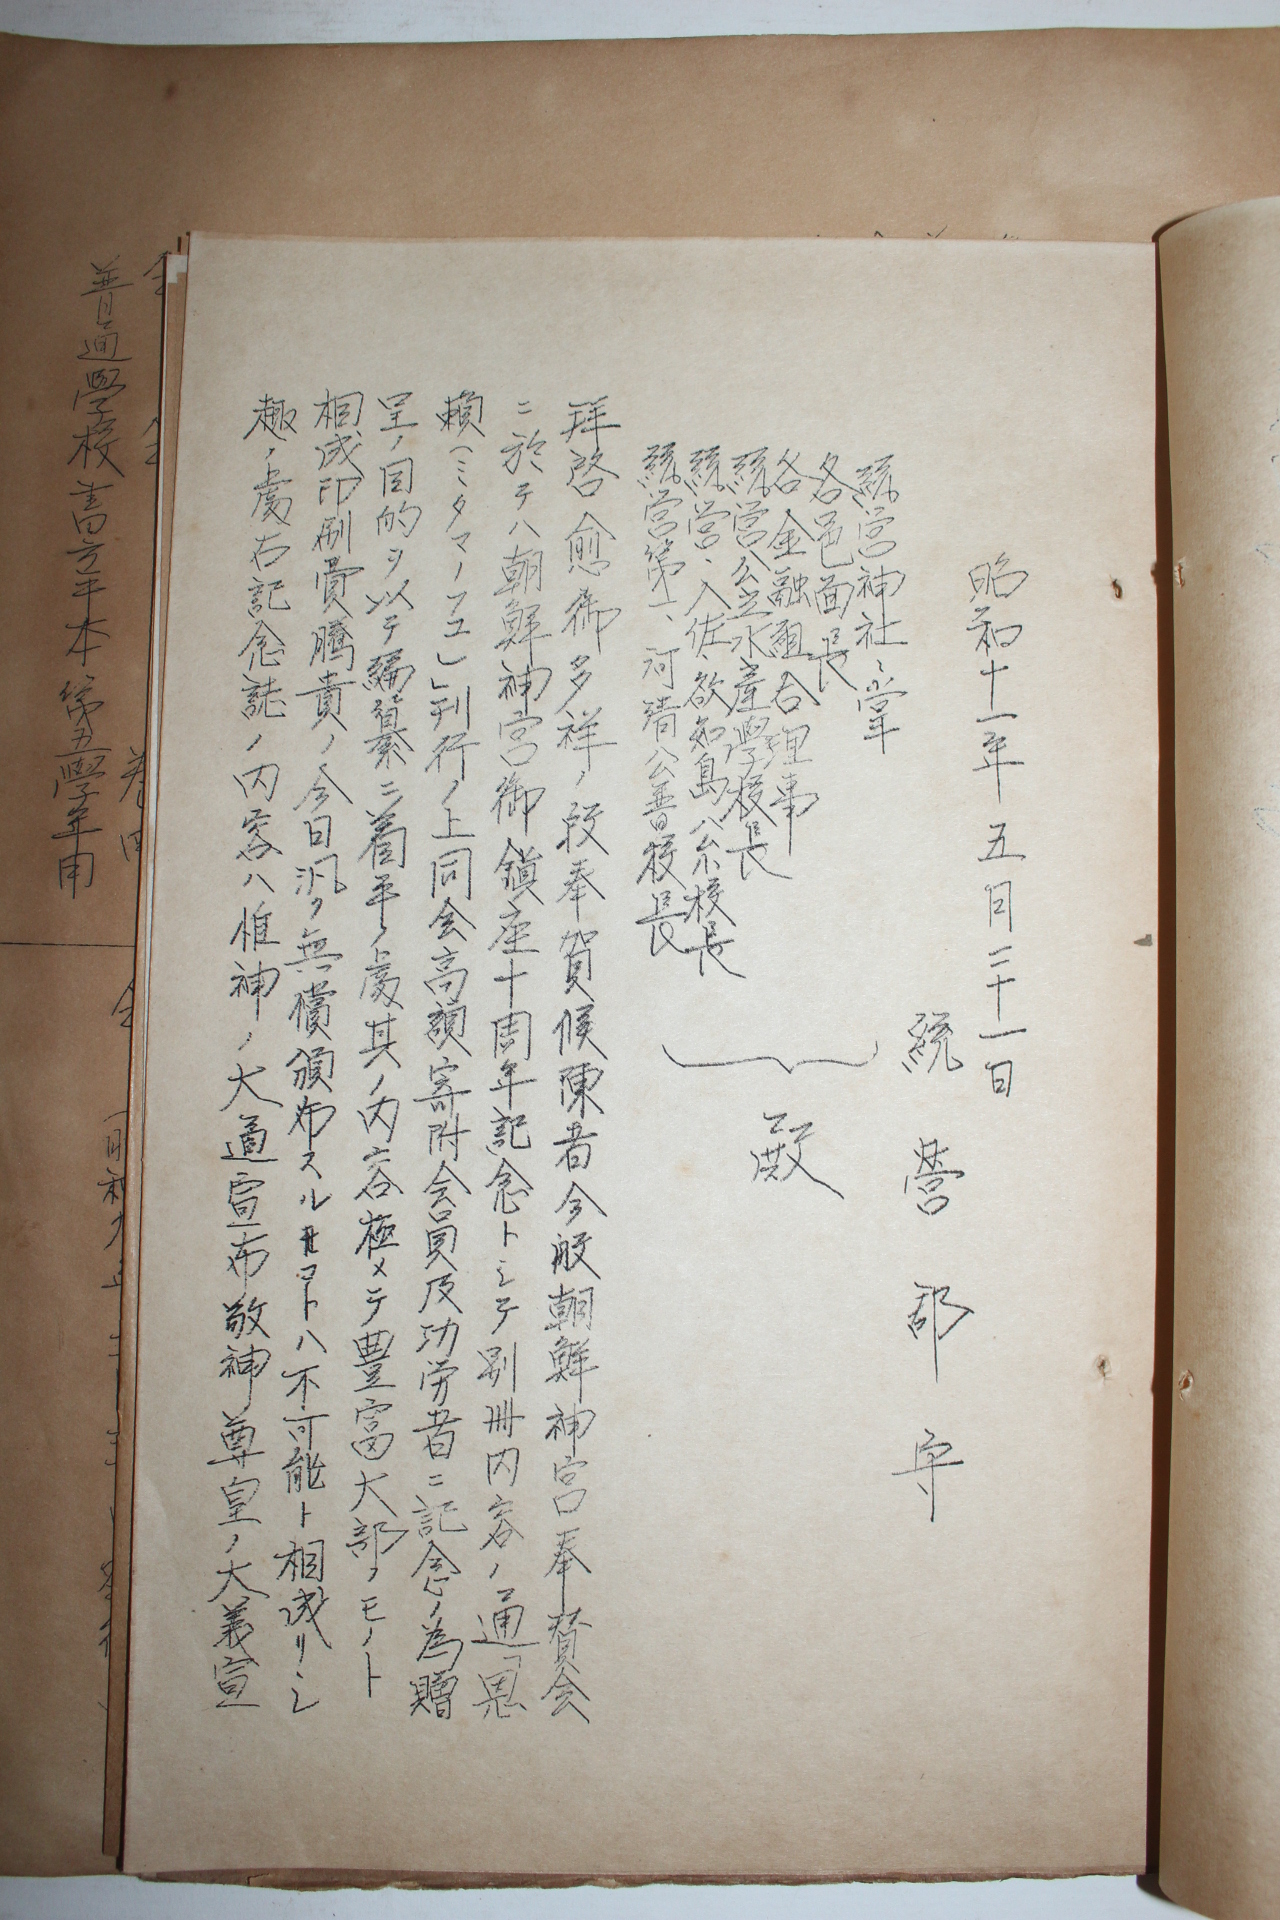 昭和十一年五月二十一日
統營郡守
統営神社々掌
各邑面長
各金融組合理事
統営公立水産學校長
統営、入佐、欲知島公小校長
統営第一、河清公普校長
殿
拝啓愈御多祥ノ段奉賀候陳者今般朝鮮神宮奉賛会
ニ於テハ朝鮮神宮御鎮座十周年記念トシテ別冊内容ノ通「恩
頼(ミタマノフユ)」刊行ノ上同会高額寄附会員及功労者ニ記念ノ為贈
呈ノ目的ヲ以テ編纂ニ着手ノ處其ノ内容極メテ豊富大部ノモノト
相成印刷費騰貴ノ今日汎ク無償頒布スルコトハ不可能ト相成リシ
趣ノ處右記念誌ノ内容ハ惟神ノ大道宣布敬神尊皇ノ大義宣
普通學校書方手本第五學年用